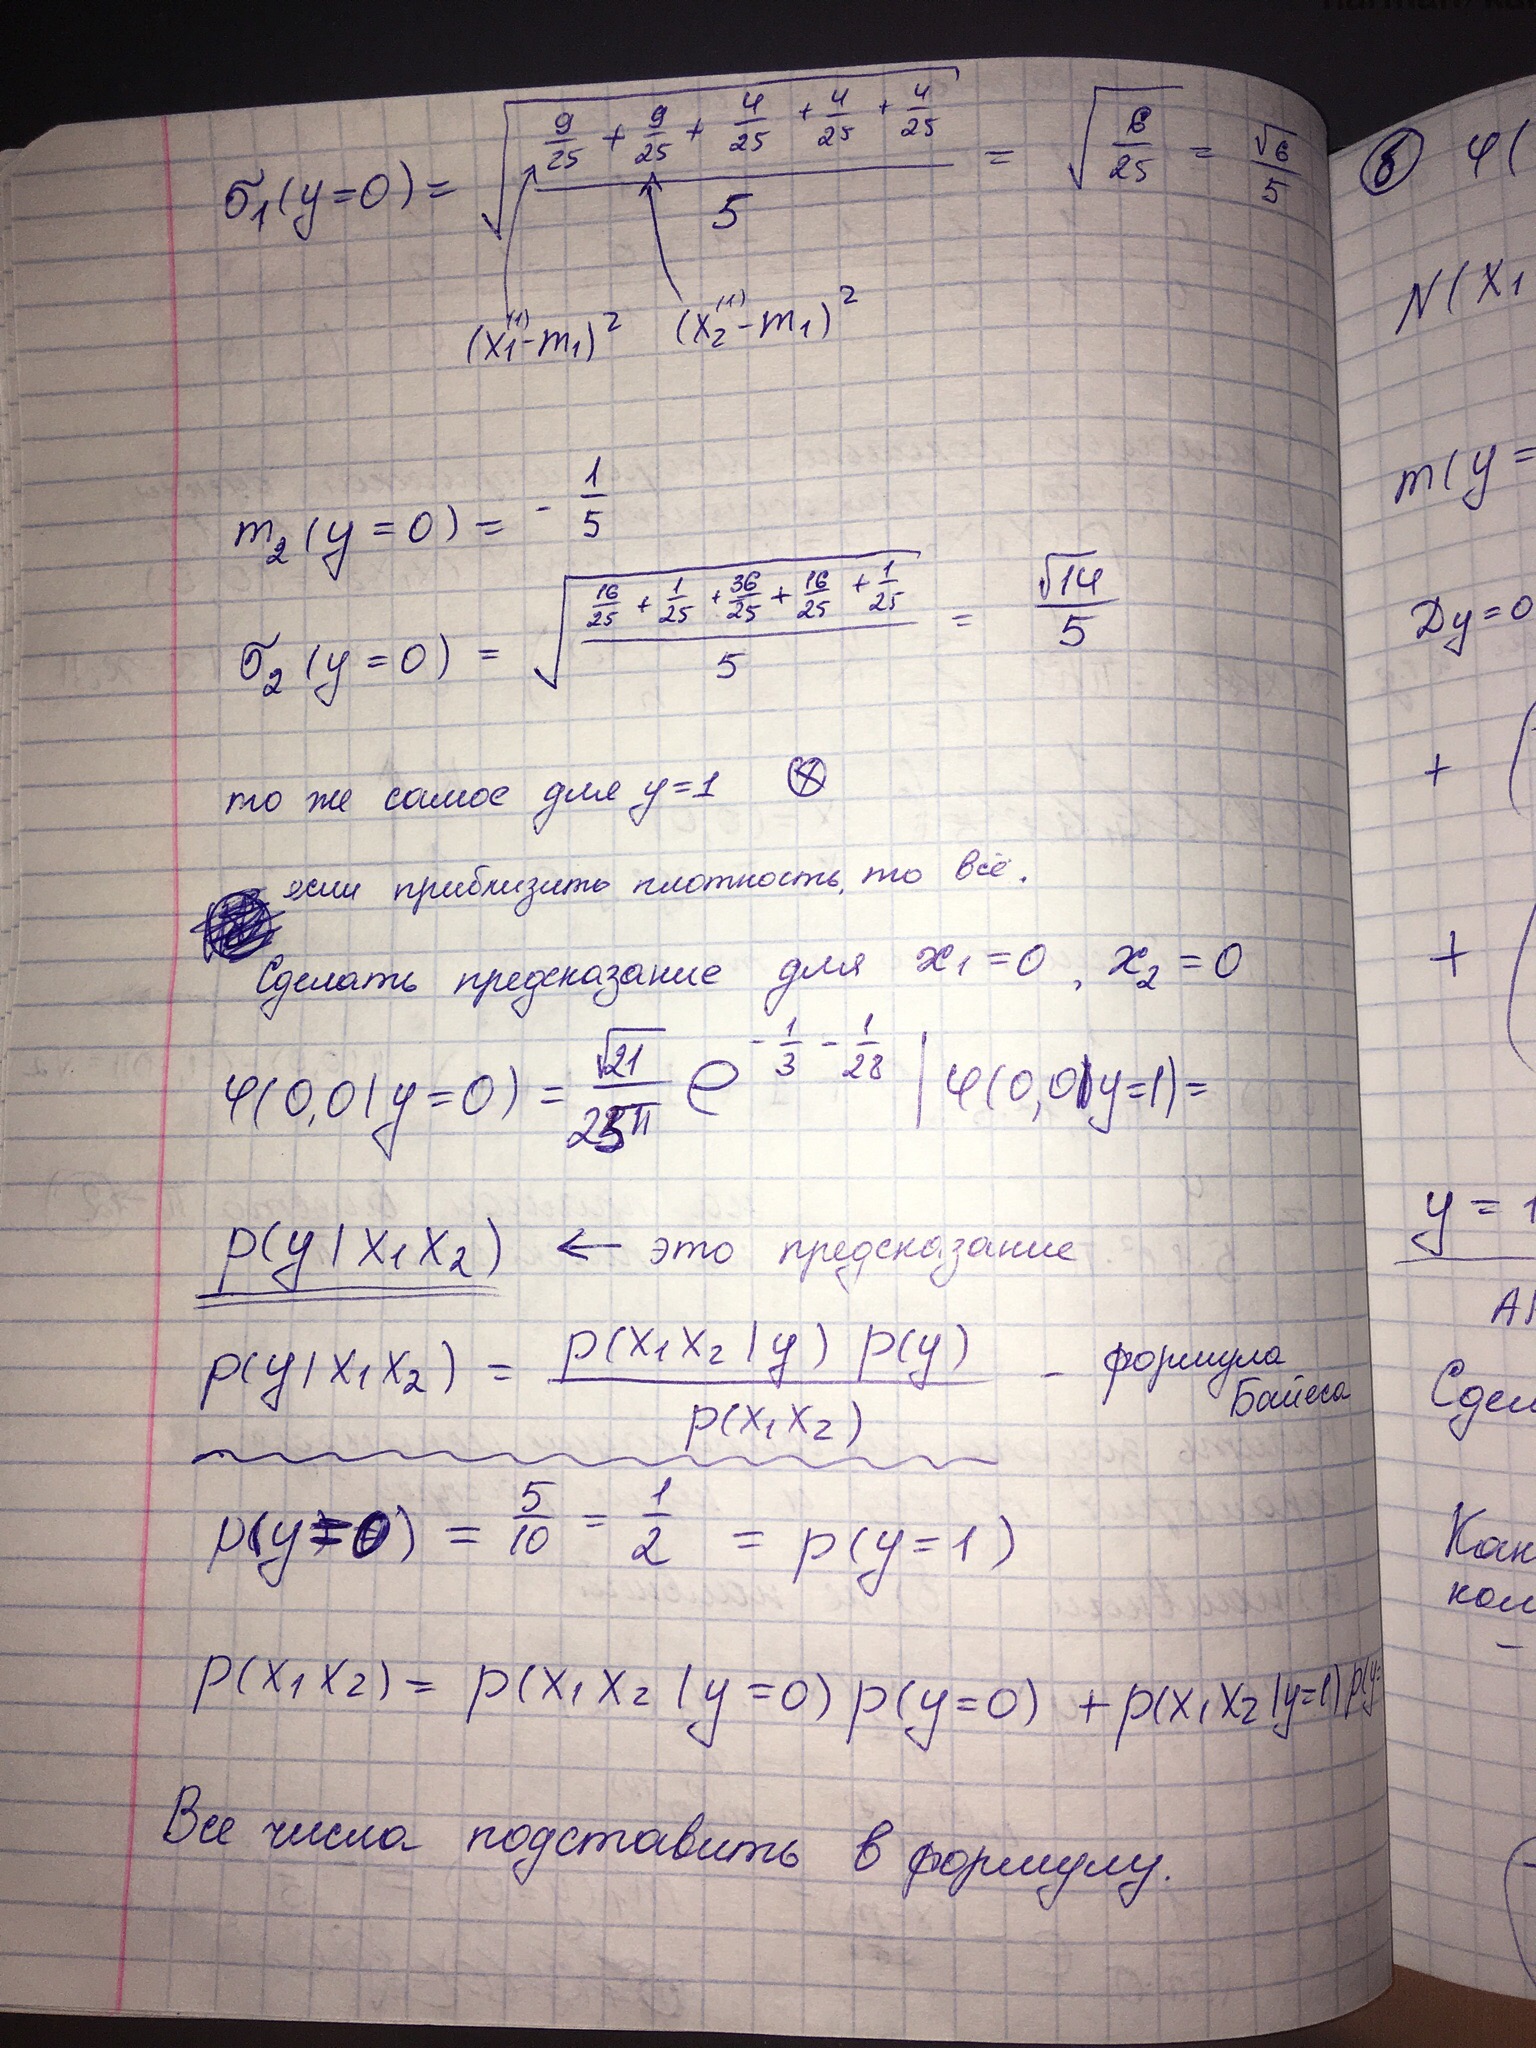 σ₁(y=0) = √((9/25 + 9/25 + 4/25 + 4/25 + 4/25)/5) = √(6/25) = √6/5
(x₁⁽¹⁾-m₁)² (x₂⁽¹⁾-m₁)²
m₂(y=0) = -1/5
σ₂(y=0) = √((16/25 + 1/25 + 36/25 + 16/25 + 1/25)/5) = √14/5
то же самое для y=1 ⊗
если приблизить плотность, то всё.
Сделать предсказание для x₁=0, x₂=0
φ(0,0|y=0) = √21/(25π) e^(-1/3 - 1/28) | φ(0,0|y=1)=
p(y|x₁x₂) ← это предсказание
p(y|x₁x₂) = p(x₁x₂|y) p(y) / p(x₁x₂) - формула Байеса
p(y=0) = 5/10 = 1/2 = p(y=1)
p(x₁x₂) = p(x₁x₂|y=0) p(y=0) + p(x₁x₂|y=1) p(y=
Все числа подставить в формулу.
φ(
N(x₁
m(y=
Dy=0
+ (
+ (
y = 1
Сдел
Кан